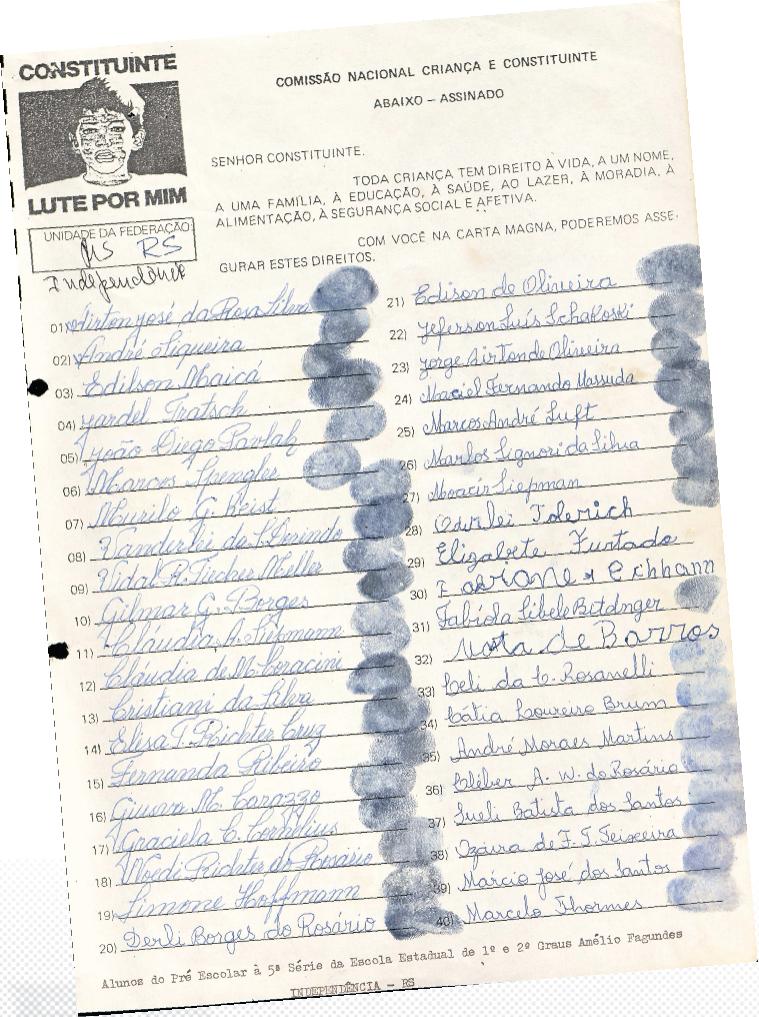 CONSTITUINTE
LUTE POR MIM
UNIDADE DA FEDERAÇÃO
RS RS
Independência
COMISSÃO NACIONAL CRIANÇA E CONSTITUINTE
ABAIXO – ASSINADO
SENHOR CONSTITUINTE.
TODA CRIANÇA TEM DIREITO À VIDA, A UM NOME,
A UMA FAMÍLIA, À EDUCAÇÃO, À SAÚDE, AO LAZER, À MORADIA, À
ALIMENTAÇÃO, À SEGURANÇA SOCIAL E AFETIVA.
COM VOCÊ NA CARTA MAGNA, PODEREMOS ASSE-
GURAR ESTES DIREITOS.
01) Airton José da Rosa Silva
02) André Siqueira
03) Edilson Maicá
04) Jardel Tratsch
05) João Diego Pavlak
06) Marcos Spengler
07) Murilo G. Keist
08) Vanderlei da S.
09) Vidal R. Fischer Meller
10) Gilmar G. Borges
11) Claudia A. Siepmann
12) Cláudia de M. Coracini
13) Cristiani da Silva
14) Elisa T. Richter Cruz
15) Fernanda Ribeiro
16) M. Carazzo
17) Graciela C. Cornélius
18) Noedi Richter do Rosário
19) Simone Hoffmann
20) Derli Borges do Rosário
21) Edison de Oliveira
22) Jeferson Luís Schakoski
23) Jorge Airton de Oliveira
24) Maciel Fernando Massuda
25) Marcos André Luft
26) Marlos Signori da Silva
27) Moacir Siepman
28) Tolerich
29) Elizabete Furtado
30)
31) Fabíola Sibele
32) de Barros
33) Celi da C. Rosanelli
34) Cátia Loureiro Brum
35) André Moraes Martins
36) Cléber A. W. do Rosário
37) Sueli Batista dos Santos
38) Ozaira de F. T. Teixeira
39) Márcio José dos Santos
40) Marcelo Thormes
Alunos do Pré Escolar à 5ª Série da Escola Estadual de 1º e 2º Graus Amélio Fagundes
INDEPENDÊNCIA – RS